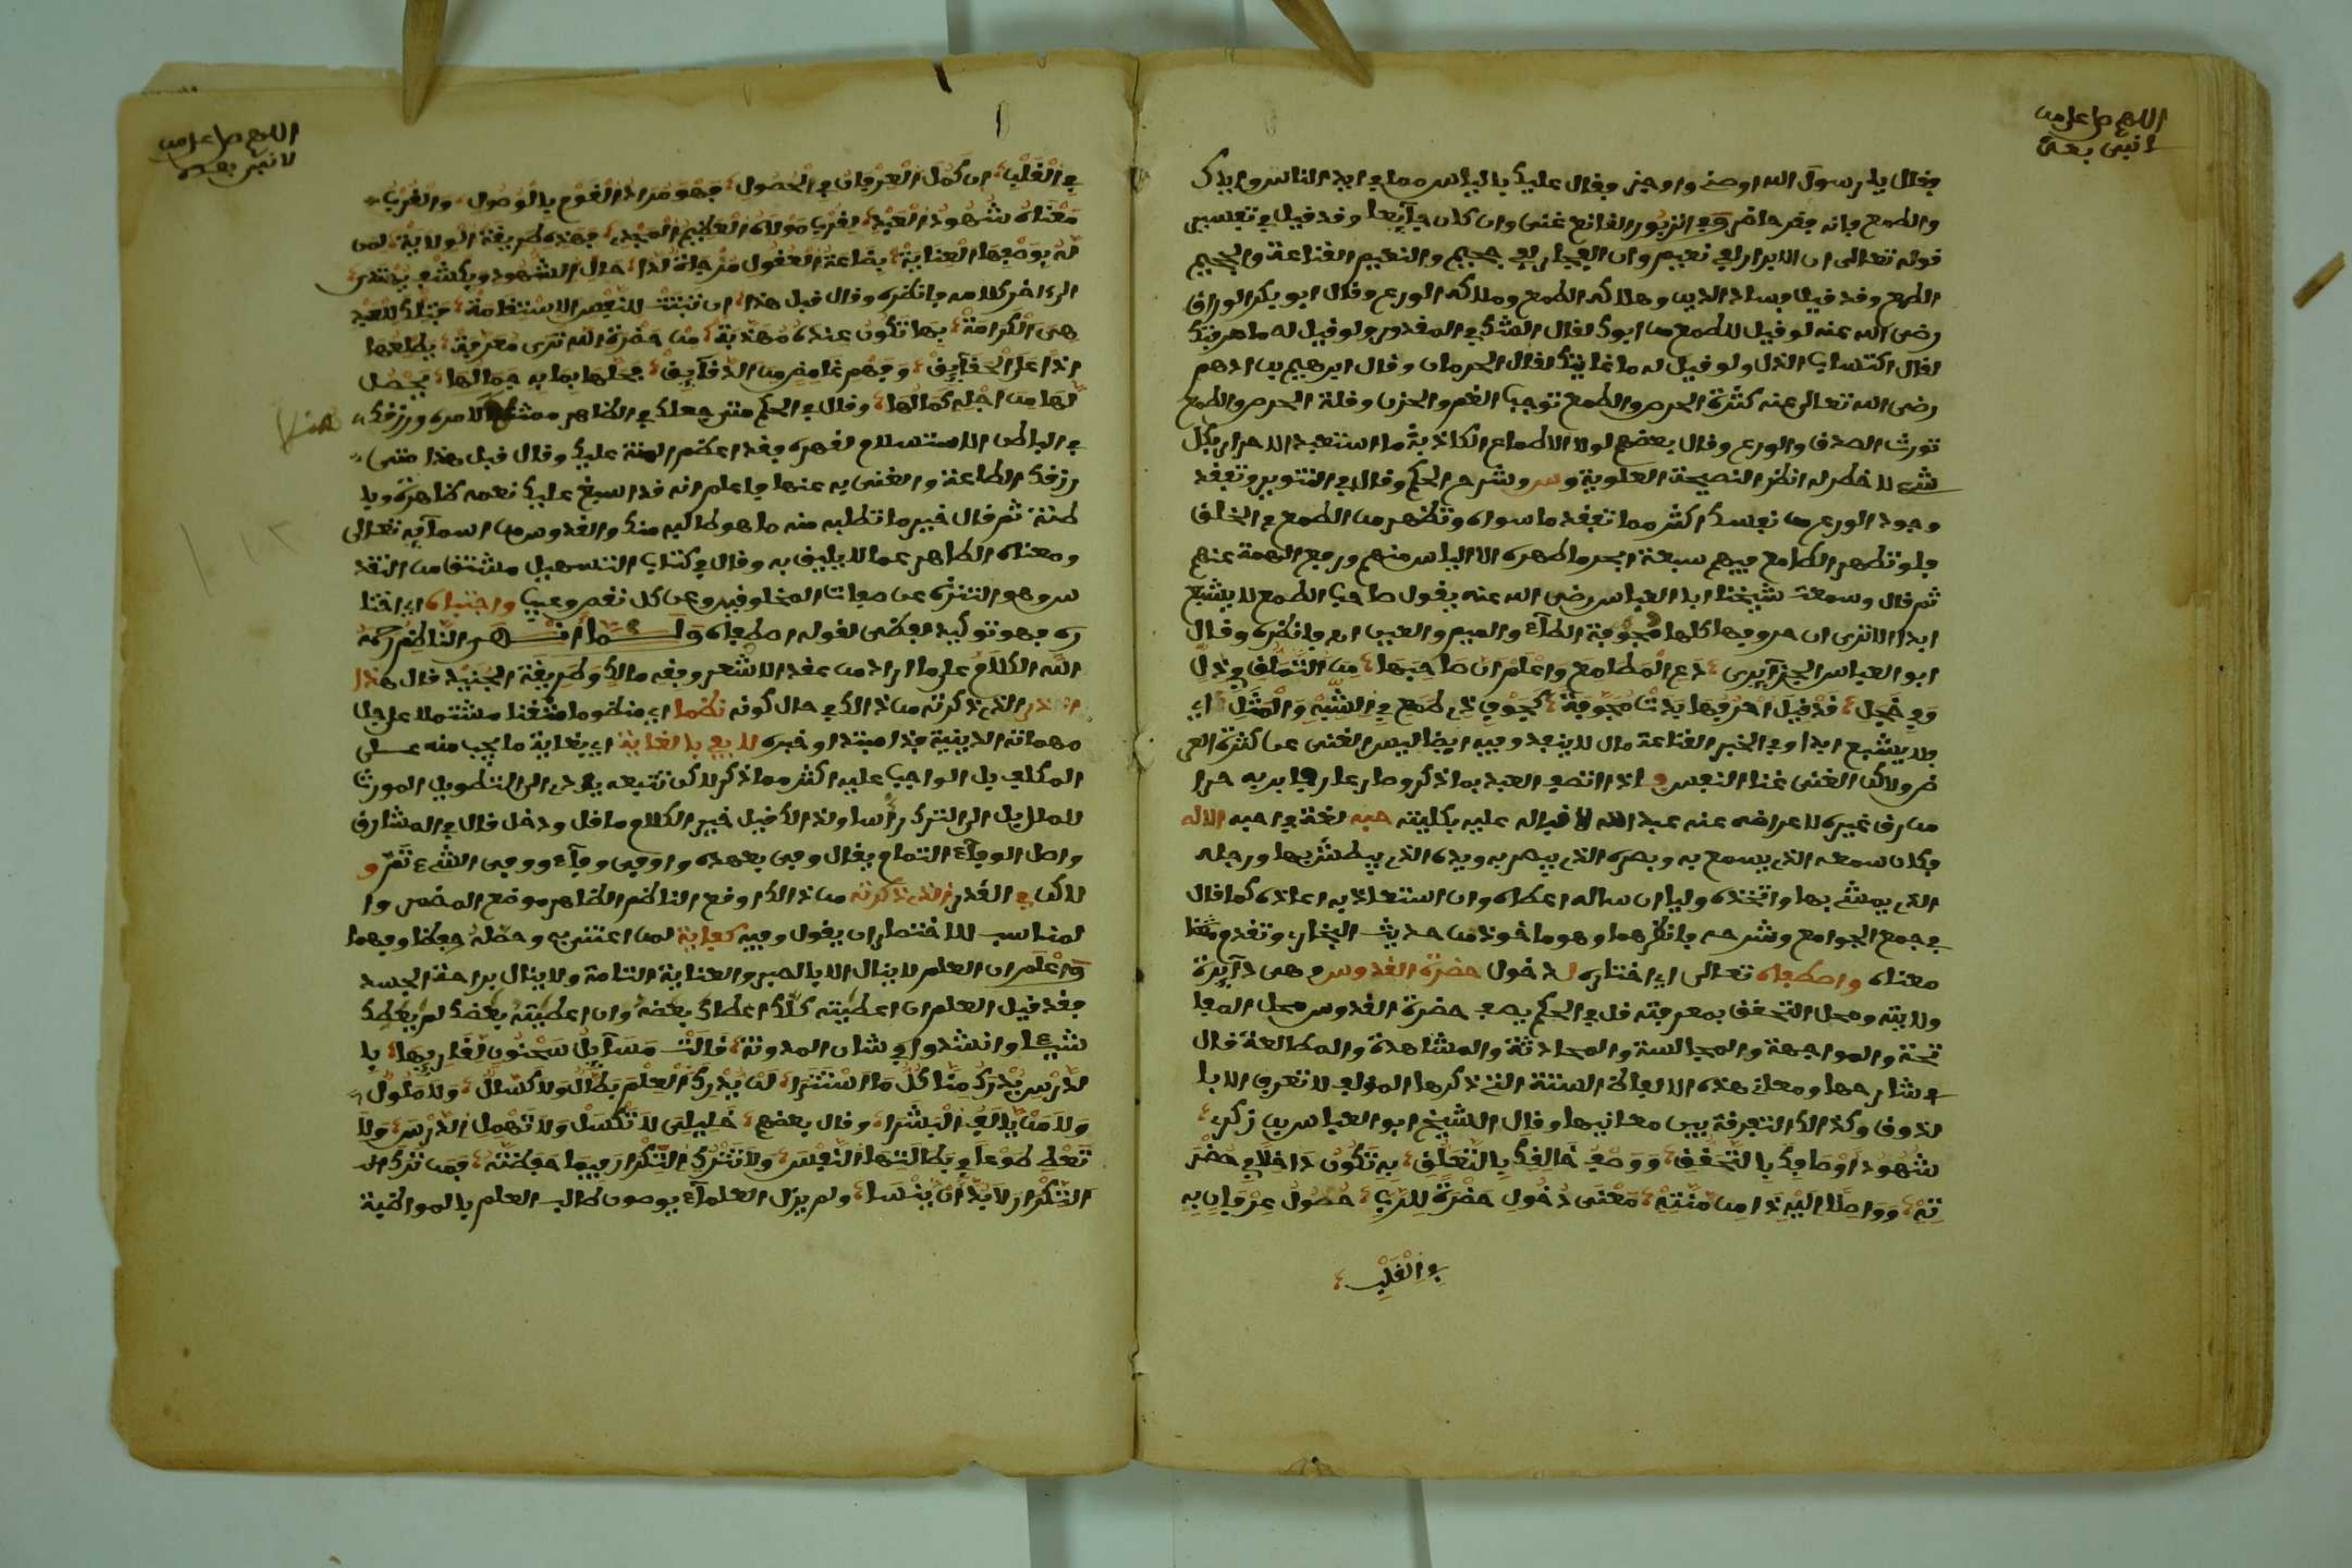 اللهم صل على من
لا نبي بعده
فقال يا رسول الله اوصني واوجز فقال عليك بالياس مما في ايد الناس واياك
والطمع فإنه فقر حاضر وفي الزبور القانع غني وان كان جآيعا وقد قيل في تفسير
قوله تعالى ان الابرار لفي نعيم وان الفجار لفي جحيم والنعيم القناعة والجحيم
الطمع وقد قيل فساد الدين وهلاكه الطمع وملاكه الورع وقال ابو بكر الوراق
رضي الله عنه لو قيل للطمع من ابوك لقال الشك في المقدور ولو قيل له ما حرفتك
لقال اكتساب الذل ولو قيل له ما غايتك لقال الحرمان وقال ابرهيم بن ادهم
رضي الله تعالى عنه كثرة الحرص والطمع توجب الغم والحزن وقلة الحرص والطمع
تورث الصدق والورع وقال بعضهم لولا الاطماع الكاذبة ما استعبد الاحرار بكل
شيء لا خطر له انظر النصيحة العلوية وشرح الحكم وقال في التنوير وتفقد
وجود الورع من نفسك اكثر مما تفقد ما سواه وتطهر من الطمع في الخلق
فلو تطهر الطامع فيهم سبعة ابحر ما طهره الا الياس منهم ورفع الهمة عنهم
ثم قال وسمعت شيخنا ابا العباس رضي الله عنه يقول صاحب الطمع لا يشبع
ابدا الا ترى ان حروفها كلها مجوفة الطآء والميم والعين اه فانظره وقال
ابو العباس الجزآيري دَعِ الْمَطَامِعَ وَاعْلَمْ أنَّ صَاحِبَهَا مِنَ التَّمَلُّقِ فِي ذُلٍّ
وَفِي خَجَلِ قَدْ قِيلَ احْرُفُهَا بَدَتْ مُجَوَّفَةً كَجَوْفِ ذِي طَمَعٍ فِي الشِّبْهِ وَالْمَثَلِ اي
فلا يشبع ابدا وفي الخبر القناعة مال لا ينفد وفيه ايضا ليس الغنى عن كثرة العر
ض ولاكن الغنى غنا النفس و اذا اتصف العبد بما ذكر وصار عارفا بربه حرا
من رق غيره لاعراضه عنه عبد الله لاقباله عليه بكليته حبه لغة في احبه الاله
فكان سمعه الذي يسمع به وبصره الذي يبصر به ويده الذي يبطش بها ورجله
التي يمشي بها واتخذه وليا ان ساله اعطاه وان استعاذ به اعاذه كما قال
في جمع الجوامع وشرحه فانظرهما وهو ماخوذ من حديث البخاري وتقدم
معناه واصطفاه تعالى اي اختاره لدخول حضرة القدوس وهي دآيرة
ولايته ومحل التحقق بمعرفته قال في الحكم يصف حضرة القدوس محل المفا
تحة والمواجهة والمجالسة والمحادثة والمشاهدة والمطالعة قال
شارحها ومعاني هذه الالفاظ الستة التي ذكرها المؤلف لا تعرف الا با
لذوق وكذا الك التفرقة بين معانيها وقال الشيخ ابو العباس بن زكري
شُهُودُ أَوْصَافِكْ بِالتَّحَقُّقِ وَوَصْفِ خَالِقِكْ بِالتَّعَلُّقِ بِهِ تَكُونُ دَاخِلًا فِي حَضْرَ
تِهْ وَوَاصِلًا إِلَيْهِ ذَا مِنْ مِنَّتِهْ مَعْنَى دُخُولِ حَضْرَةٍ لِلرَّبِّ حُصُولُ عِرْفَانٍ بِهِ
فِي الْقَلْبِ
اللهم صل على من
لا نبي بعده
فِي الْقَلْبِ ان كَمُلَ الْعِرْفَانُ فِي الْحُصُولِ فَهْوَ مُرَادُ الْقَوْمِ بِالْوُصُولِ وَالْقُرْبُ
مَعْنَاهُ شُهُودُ الْعَبْدِ لِقُرْبِ مَوْلَاهُ الْعَظِيمِ الْمَجْدِ فَهَذِهِ طَرِيقَةُ الْوِلَايَةْ لِمَن
لَهُ بِوَصْفِهَا الْعِنَايَةْ بضاعة العقول مزجاة لذا حال الشهود وبكشف يحتذى
الى ءاخر كلامه فانظره وقال قبل هذا ان تثبت للنفس الاستقامة فتلك للعبد
هي الكرامة بها تكون عنده مهذبة من حضرة الله ترى مقربة يطلعها
اذًا على الحقآيق وفهم غامض من الدقآيق فحلها بما به جمالها يحصل
لها من اجله كمالها وقال في الحكم متى جعلك في الظاهر ممتثلا لامره ورزقك
في الباطن الاستسلام لقهره فقد اعظم المنة عليك وقال قبل هذا متى
رزقك الطاعة والغنى به عنها فاعلم انه قد اسبغ عليك نعمه ظاهرة وبا
طنة ثم قال خير ما تطلبه منه ما هو طالبه منك والقدوس من اسمآيه تعالى
ومعناه الطاهر عما لا يليق به وقال في كتاب التسهيل مشتق من التقد
س وهو التنزه عن صفات المخلوقين وعن كل نقص وعيب واجتباه اي اختا
ره فهو توكيد لفظي لقوله اصطفاه وَلَـمَّا أنـهـى النَّاظِمُ رَحِمَهُ
اللَّهُ الْكَلَامَ على ما اراد من عقد الاشعر وفقه مالك وَطَرِيقَةِ الْجُنَيْدِ قال هذا
القدر الذي ذكرته من ذالك في حال كونه نظما اي منظوما متقنا مشتملا على جل
مهماته الدينية هذا مبتدا وخبره لا يفي بالغاية اي بغاية ما يجب منه على
المكلف بل الواجب عليه اكثر مما ذكر لاكن تتبعه يؤدي الى التطويل المورث
للملل بل الى الترك رأسا ولذالك قيل خير الكلام ما قل ودل قال في المشارق
واصل الوفآء التمام يقال وفى بعهده واوفى وفآء ووفى الشيء تَمَّ و
لاكن في القدر الذي ذكرته من ذالك اوقع الناظم الظاهر موقع المضمر وا
لمناسب للاختصار ان يقول وفيه كفاية لمن اعتنى به وحصله حفظا وفهما
وَاعْلَمْ ان العلم لا ينال الا بالصبر والعناية التامة ولا ينال براحة الجسد
فقد قيل العلم ان اعطيته كلك اعطاك بعضه وان اعطيته بعضك لم يعطك
شيئا وانشدوا في شان المدونة قَالَتْ مَسَآيِلُ سَحْنُونٍ لِقَارِيهَا بِا
لدَّرْسِ يُدْرَكُ مِنَّا كُلُّ مَا اسْتَتَرَا لَنْ يُدْرِكَ الْعِلْمَ بَطَّالٌ وَلَا كَسِلٌ وَلَا مَلُولٌ
وَلَا مَنْ يَالَفُ الْبَشَرَا وقال بعضهم خَلِيلِيَ لَا تَكْسَلْ وَلَا تُهْمِلِ الدَّرْسَ وَلَا
تُعْطِ طَوْعًا فِي بَطَالَتِهَا النَّفْسَ وَلَا تَتْرُكِ التِّكْرَارَ فِيمَا حَفِظْتَهُ فَمَن تَرَكَ
التِّكْرَارَ لَا بُدَّ أَنْ يَنْسَا ولم يزل العلمآء يوصون طالب العلم بالمواظبة